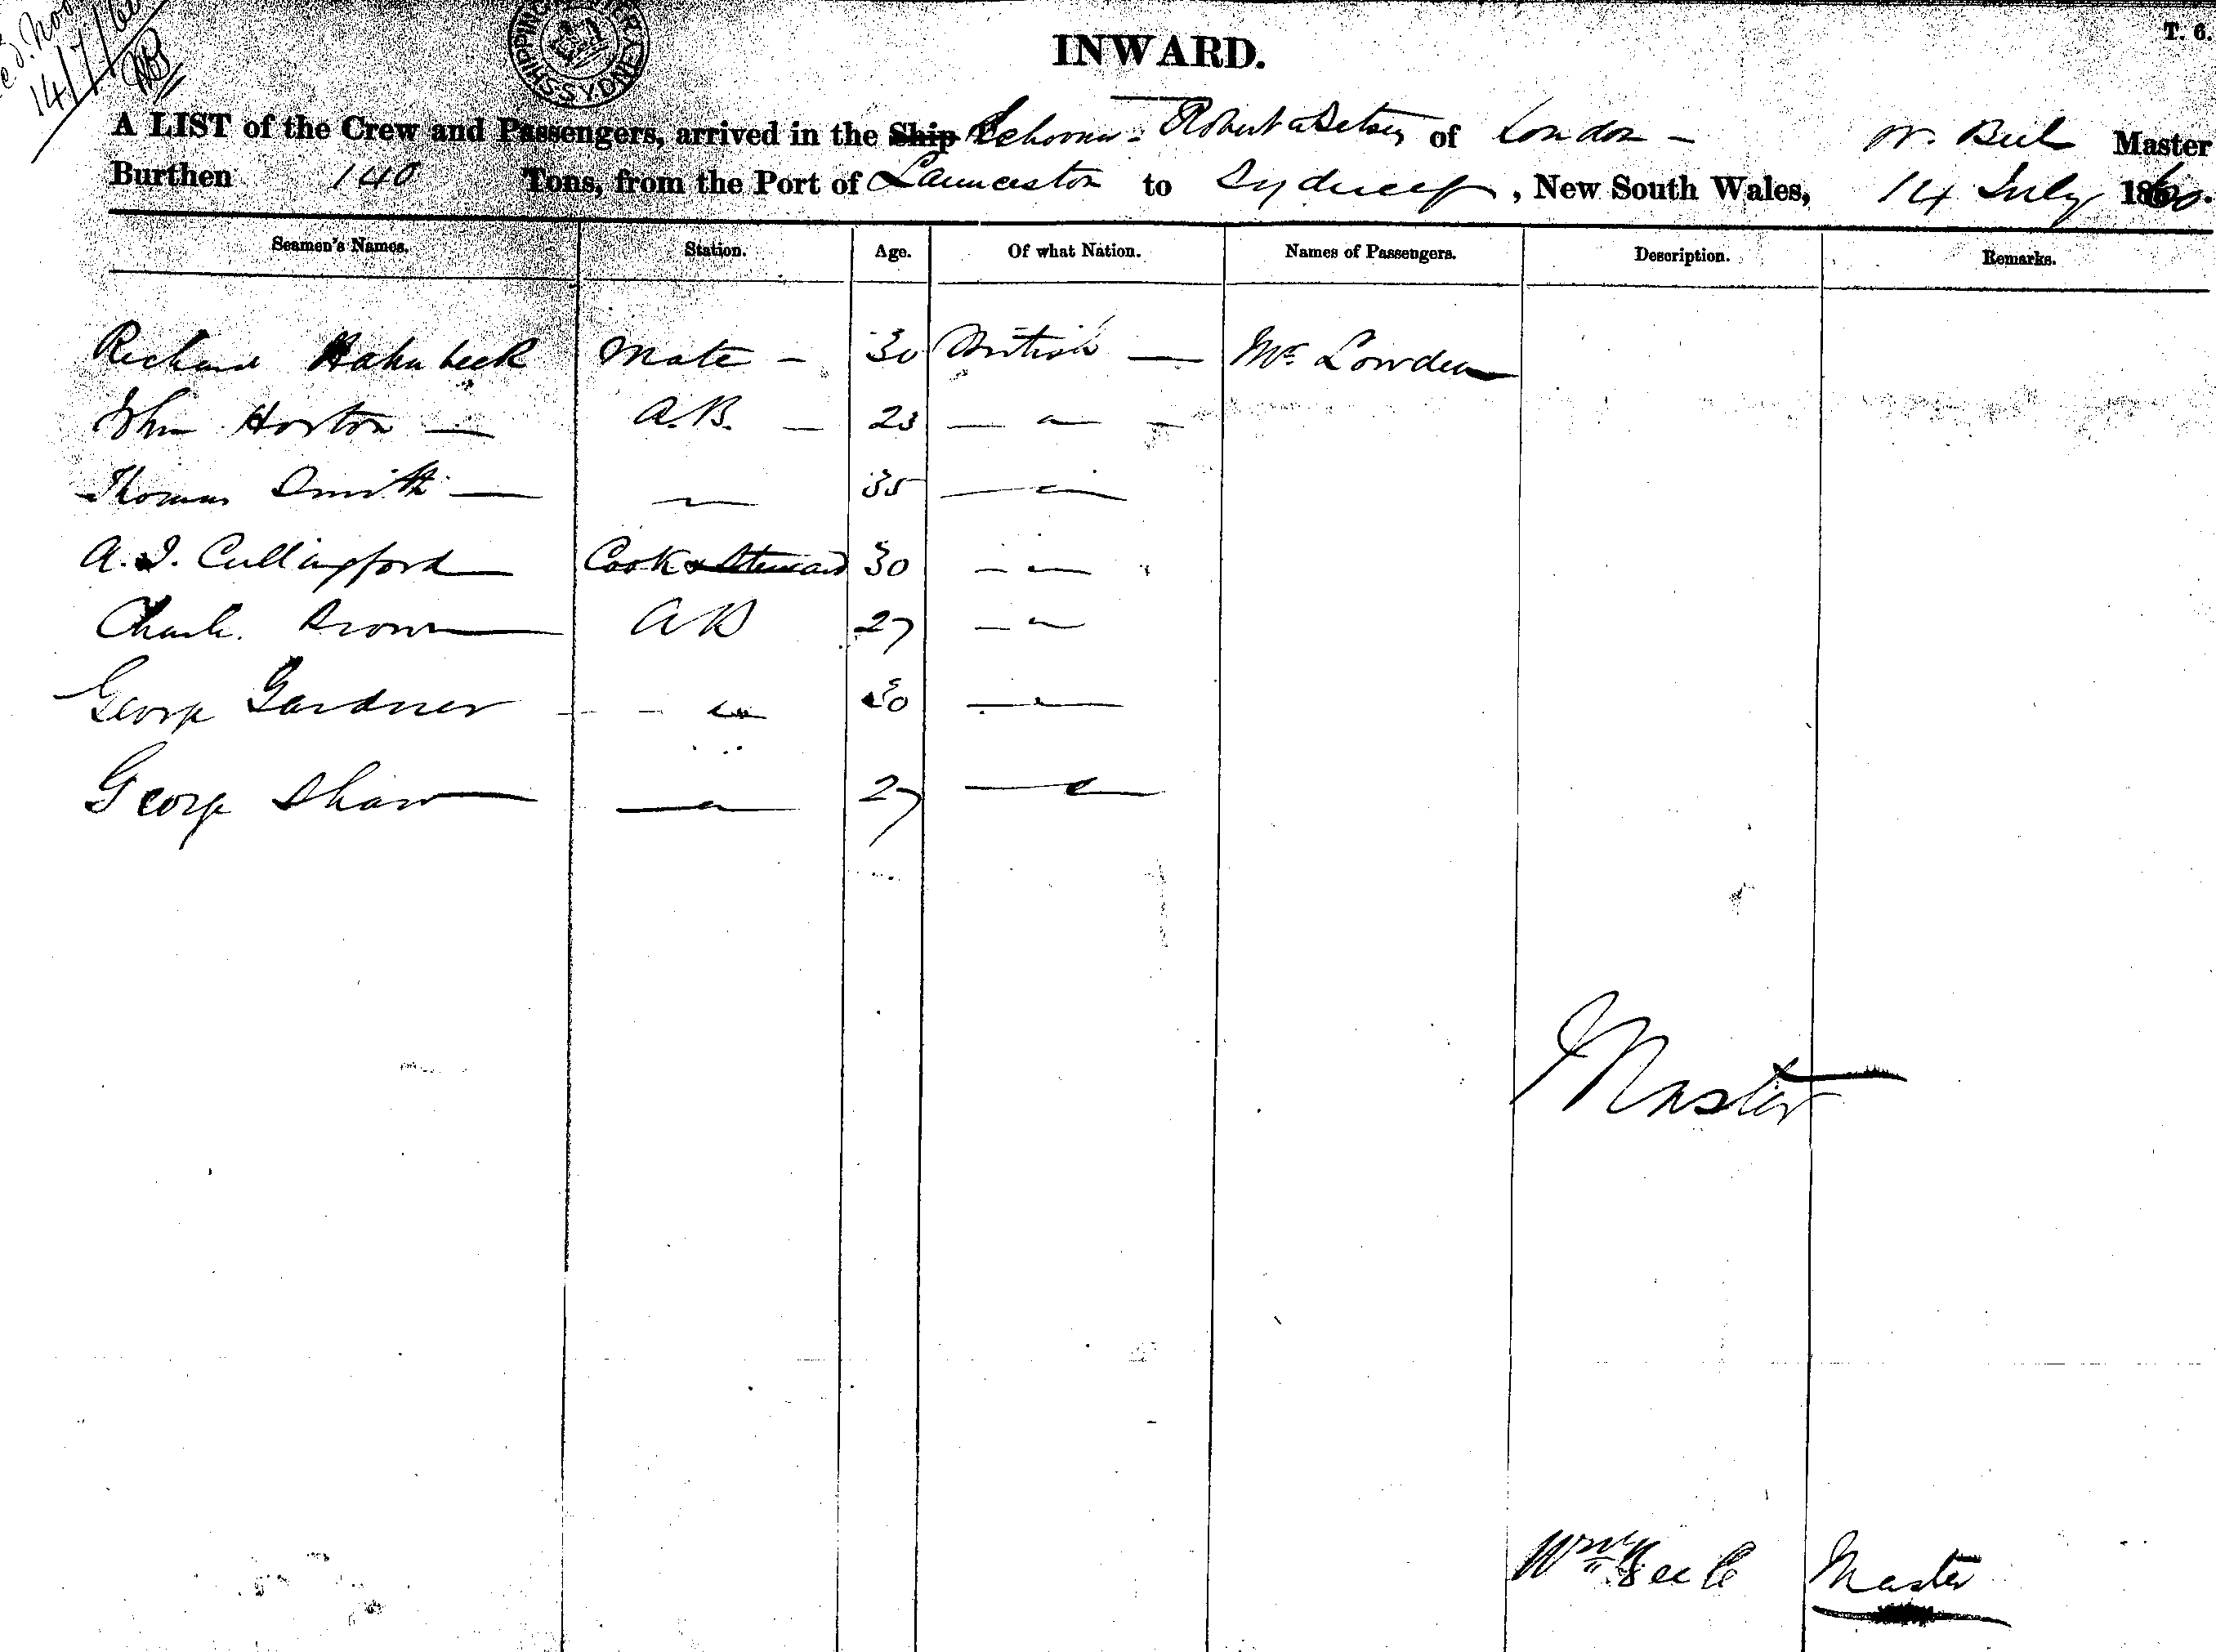 14/7/60
SHIPPING MASTER SYDNEY
INWARD.
T. 6.
A LIST of the Crew and Passengers, arrived in the Ship Schooner - Robert & Betsey of London - W. Beel Master
Burthen 140 Tons, from the Port of Launceston to Sydney, New South Wales, 14 July 1860.
Seamen's Names. Station. Age. Of what Nation. Names of Passengers. Description. Remarks.
Richard Mate - 30 British — Mr. Lowden
John Horton — A.B. — 23 — " —
Thomas Smith — " 35 — " —
A. J. Cullingford Cook & Steward 30 — " —
Charle. Brown A B 27 — " —
George Gardner - - " 30 — " —
George Shaw — " — 27 — " —
Master
Wm Beele Master